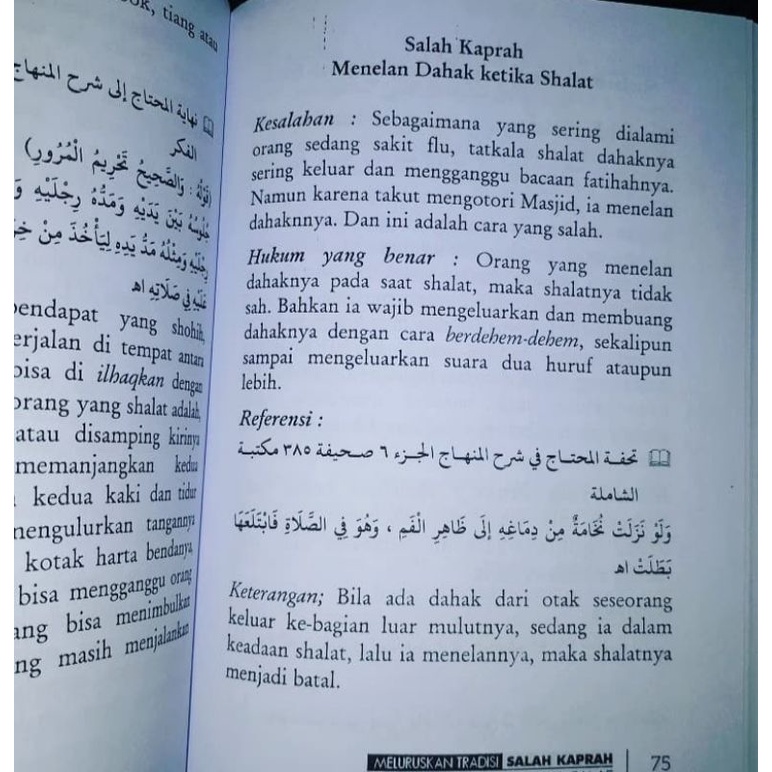 tiang atau
نهاية المحتاج إلى شرح المنهاج
الفكر
(قَوْلُهُ : وَالصَّحِيحُ تَحْرِيمُ الْمُرُورِ)
جُلُوسُهُ بَيْنَ يَدَيْهِ وَمَدُّهُ رِجْلَيْهِ
رِجْلَيْهِ وَمِثْلُهُ مَدُّ يَدِهِ لِيَأْخُذَ مِنْ
عَلَيْهِ فِي صَلَاتِهِ اهـ
pendapat yang shohih,
berjalan di tempat antara
bisa di ilhaqkan dengan
orang yang shalat adalah,
atau disamping kirinya
memanjangkan kedua
kedua kaki dan tidur
mengulurkan tangannya
kotak harta bendanya
bisa mengganggu orang
yang bisa menimbulkan
masih menjalankan
Salah Kaprah
Menelan Dahak ketika Shalat
Kesalahan : Sebagaimana yang sering dialami
orang sedang sakit flu, tatkala shalat dahaknya
sering keluar dan mengganggu bacaan fatihahnya.
Namun karena takut mengotori Masjid, ia menelan
dahaknnya. Dan ini adalah cara yang salah.
Hukum yang benar : Orang yang menelan
dahaknya pada saat shalat, maka shalatnya tidak
sah. Bahkan ia wajib mengeluarkan dan membuang
dahaknya dengan cara berdehem-dehem, sekalipun
sampai mengeluarkan suara dua huruf ataupun
lebih.
Referensi :
تحفة المحتاج في شرح المنهاج الجزء ٦ صحيفة ٣٨٥ مكتبة
الشاملة
وَلَوْ نَزَلَتْ نُخَامَةٌ مِنْ دِمَاغِهِ إلَى ظَاهِرِ الْفَمِ ، وَهُوَ فِي الصَّلَاةِ فَابْتَلَعَهَا
بَطَلَتْ اهـ
Keterangan; Bila ada dahak dari otak seseorang
keluar ke-bagian luar mulutnya, sedang ia dalam
keadaan shalat, lalu ia menelannya, maka shalatnya
menjadi batal.
MELURUSKAN TRADISI SALAH KAPRAH | 75